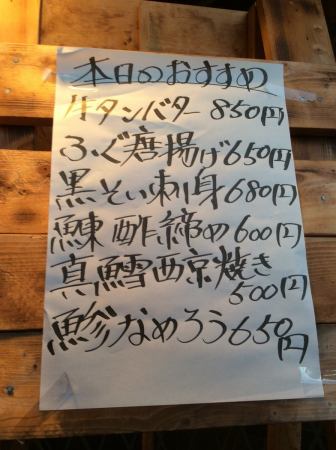 本日のおすすめ
牛タンバター 850円
ふぐ唐揚げ650円
黒そい刺身680円
鰊酢締め600円
真鱈西京焼き
500円
鯵なめろう650円